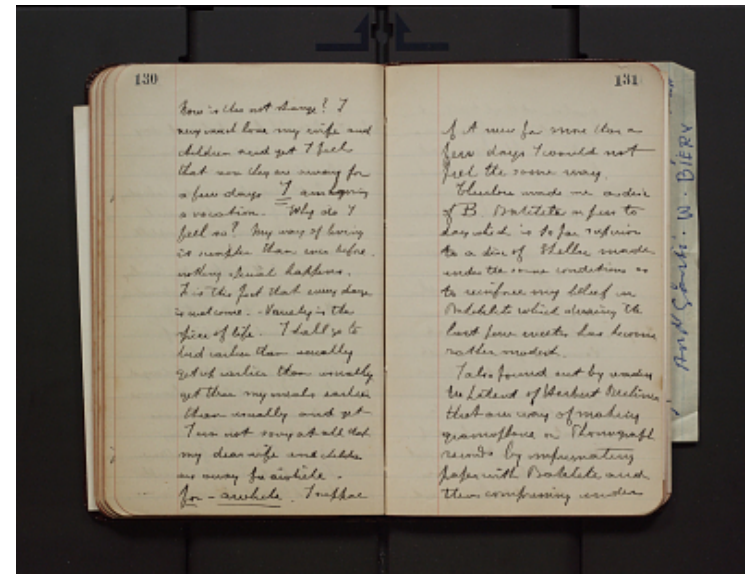 130
How is this not strange? I
very much love my wife and
children and yet I feel
that now they are away for
a few days I am enjoying
a vacation. Why do I
feel so? My way of living
is simpler than ever before.
nothing special happens.
It is the fact that every change
is welcome. - Variety is the
spice of life. I shall go to
bed earlier than usually
get up earlier than usually
get thru my meals earlier
than usually and yet
I am not sorry at all that
my dear wife and children
are away for awhile.
for - awhile. I suppose
131
if it were for more than a
few days I would not
feel the same way.
Thurlow made me a disc
of B. Bakelite
day which is so far superior
to a disc of Shellac made
under the same conditions as
to reinforce my belief in
Bakelite which during the
last few weeks has become
rather modest.
I also found out by reading
the patent of Herbert
that one way of making
gramophone or Phonograph
records by impregnating
paper with Bakelite and
then compressing under
W. BIERY